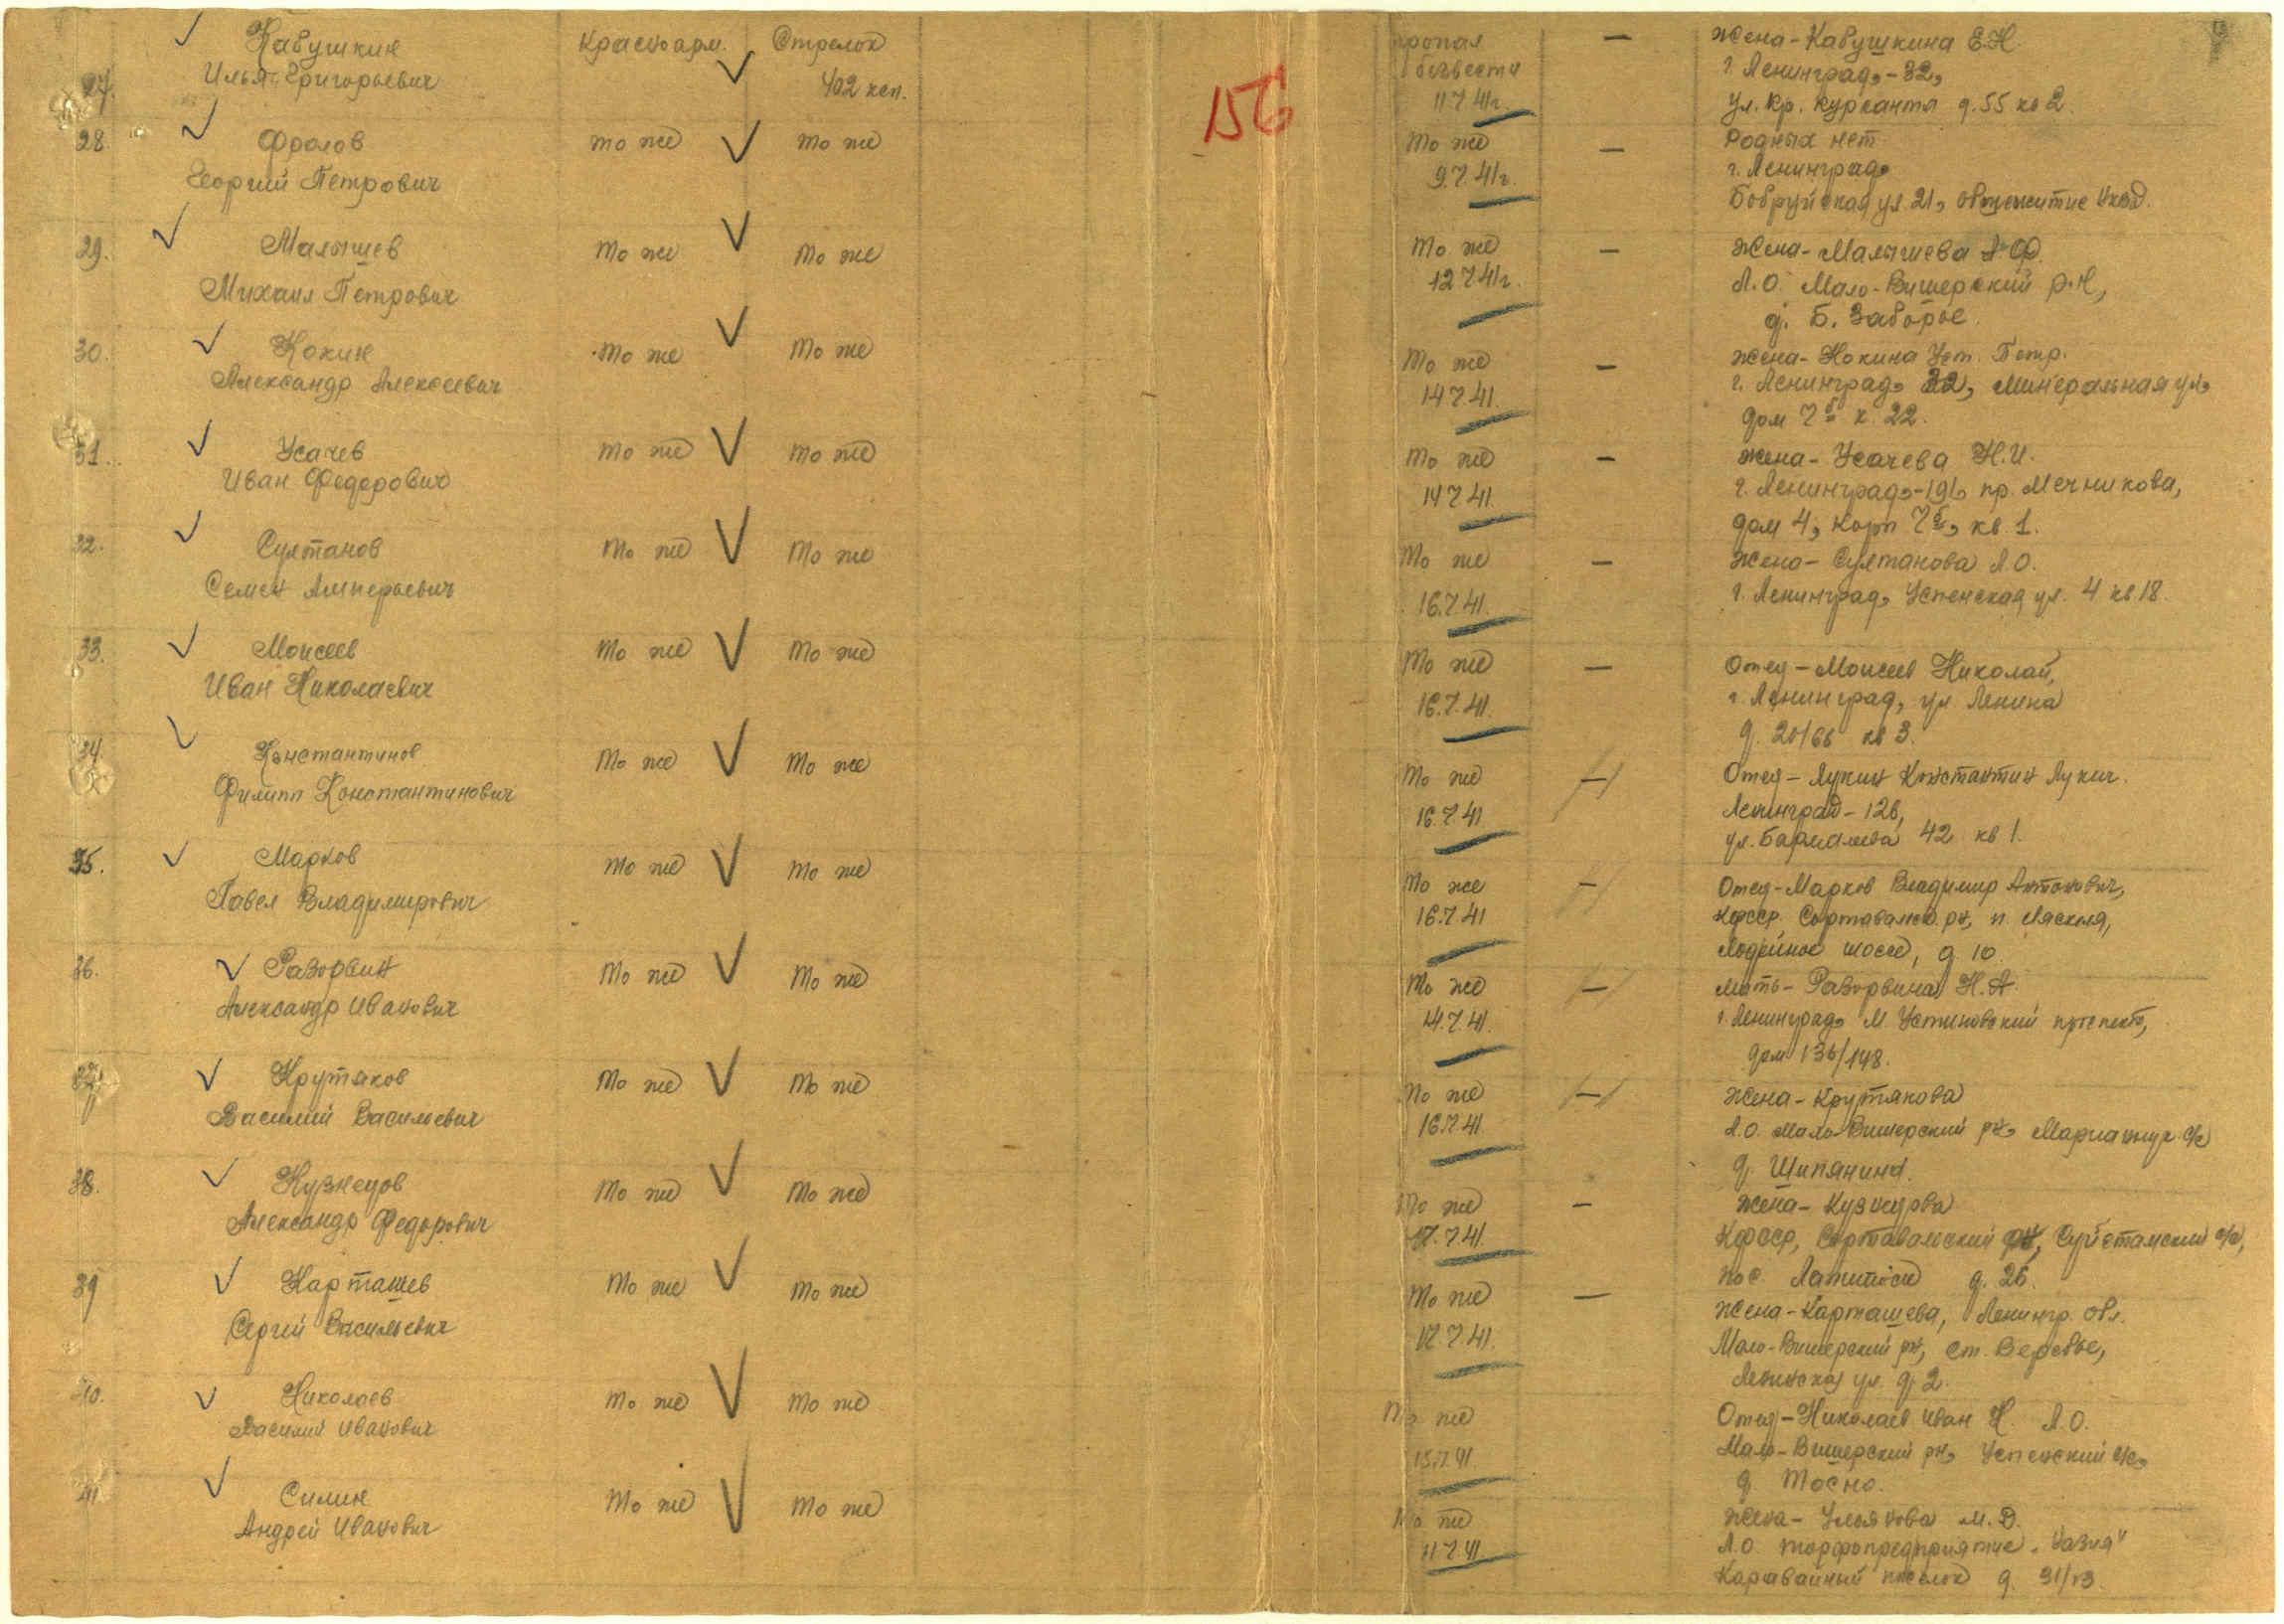 27. Кабушкин Красноарм. Стрелок пропал — жена - Кабушкина Е.Н.
Илья Григорьевич 402 ксп. безвести г. Ленинград, - 32,
11.7.41г. ул. Кр. Курсанта д. 55 кв 2.
156
28. Фролов то же то же то же — Родных нет
Георгий Петрович 9.7.41г. г. Ленинград,
Бобруйская ул 21, общежитие
29. Малышев то же то же то же — жена - Малышева А.Ф.
Михаил Петрович 12.7.41г. Л.О. Мало-Вишерский р-н,
д. Б. Заборье.
30. Кокин то же то же то же — жена - Кокина Уст. Петр.
Александр Алексеевич 14.7.41. г. Ленинград, 32, Минеральная ул,
дом 7б к. 22.
31. Усачев то же то же то же — жена - Усачева Н.И.
Иван Федорович 14.7.41. г. Ленинград, пр. Мечникова,
дом 4, корп 7б, кв. 1.
32. Султанов то же то же то же — жена - Султанова Л.О.
Семен 16.7.41. г. Ленинград, Успенская ул. 4 кв 18.
33. Моисеев то же то же то же — Отец - Моисеев Николай,
Иван Николаевич 16.7.41. г. Ленинград, ул Ленина
д. 20/66 кв 3.
34. Константинов то же то же то же — Отец - Лукин Константин Лукич.
Филипп Константинович 16.7.41 Ленинград - 126,
ул. Бармалеева 42 кв 1.
35. Марков то же то же то же — Отец - Марков Владимир Антонович,
Павел Владимирович 16.7.41 КФССР Сортавальск. рн, п Ляскеля,
шоссе, д. 10.
36. Разорвин то же то же то же — мать - Разорвина Н.А.
Александр Иванович 14.7.41. г. Ленинград, М Устиновский проспект,
дом 136/148.
37. Крутяков то же то же то же — жена - Крутякова
Василий Васильевич 16.7.41. Л.О. Мало-Вишерский рн, с/с
д. Шипянино.
38. Кузнецов то же то же то же — жена - Кузнецова
Александр Федорович 17.7.41. КФССР, Сортавальский рн, с/с,
пос. д. 26.
39 Карташев то же то же то же — жена - Карташева, Ленингр. обл.
Сергей Васильевич 17.7.41. Мало-Вишерский рн, ст. Веребье,
Ленинская ул. д 2.
40. Николаев то же то же то же Отец - Николаев Иван Н. Л.О.
Василий Иванович 15.7.41. Мало-Вишерский рн, Успенский с/с,
д.
41. Силин то же то же то же жена - Ульянова М.Д.
Андрей Иванович 11.7.41. Л.О. торфопредприятие „Назия"
поселок д. 31/13.